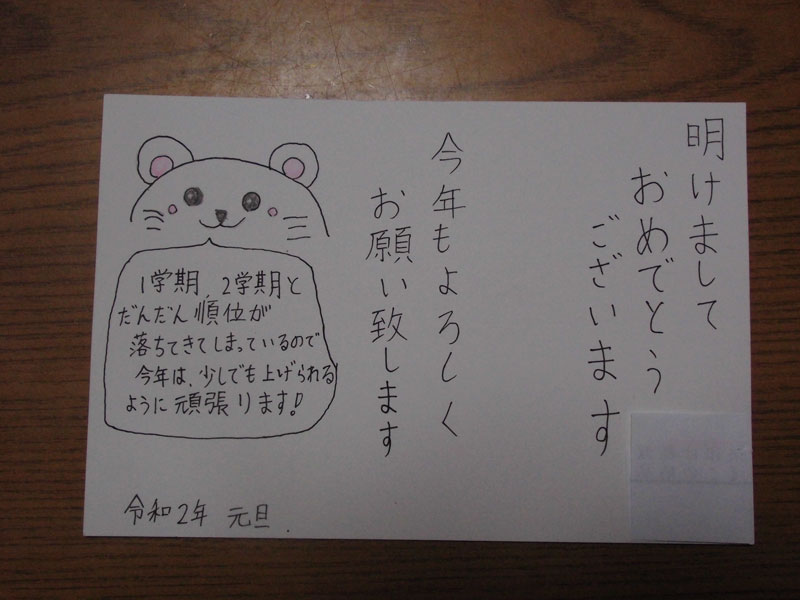 明けまして
おめでとう
ございます
今年もよろしく
お願い致します
1学期、2学期と
だんだん順位が
落ちてきてしまっているので
今年は、少しでも上げられる
ように頑張ります!
令和2年 元旦.